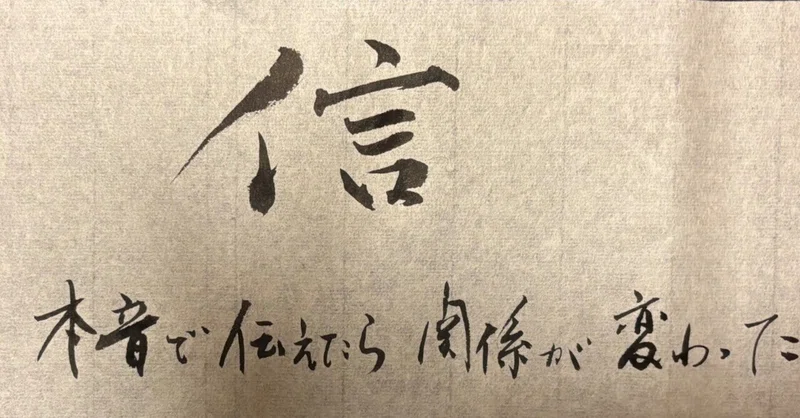 信
本音で伝えたら関係が変わった